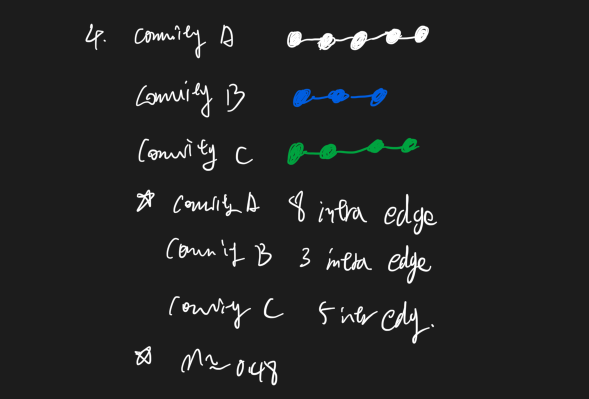 4. Commity A
Commity B
Commity C
☆ Commity A 8 intra edge
Commity B 3 intra edge
Commity C 5 intr edg.
☆ M ≈ 0.48